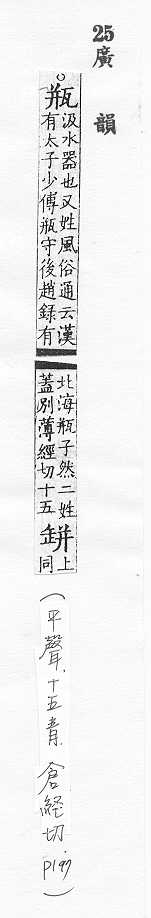 25廣韻
○瓶汲水器也又姓風俗通云漢
有太子少傅瓶守後趙錄有
北海瓶子然二姓
蓋別薄經切十五
缾上
同
(平聲.十五青.倉経切.P197)